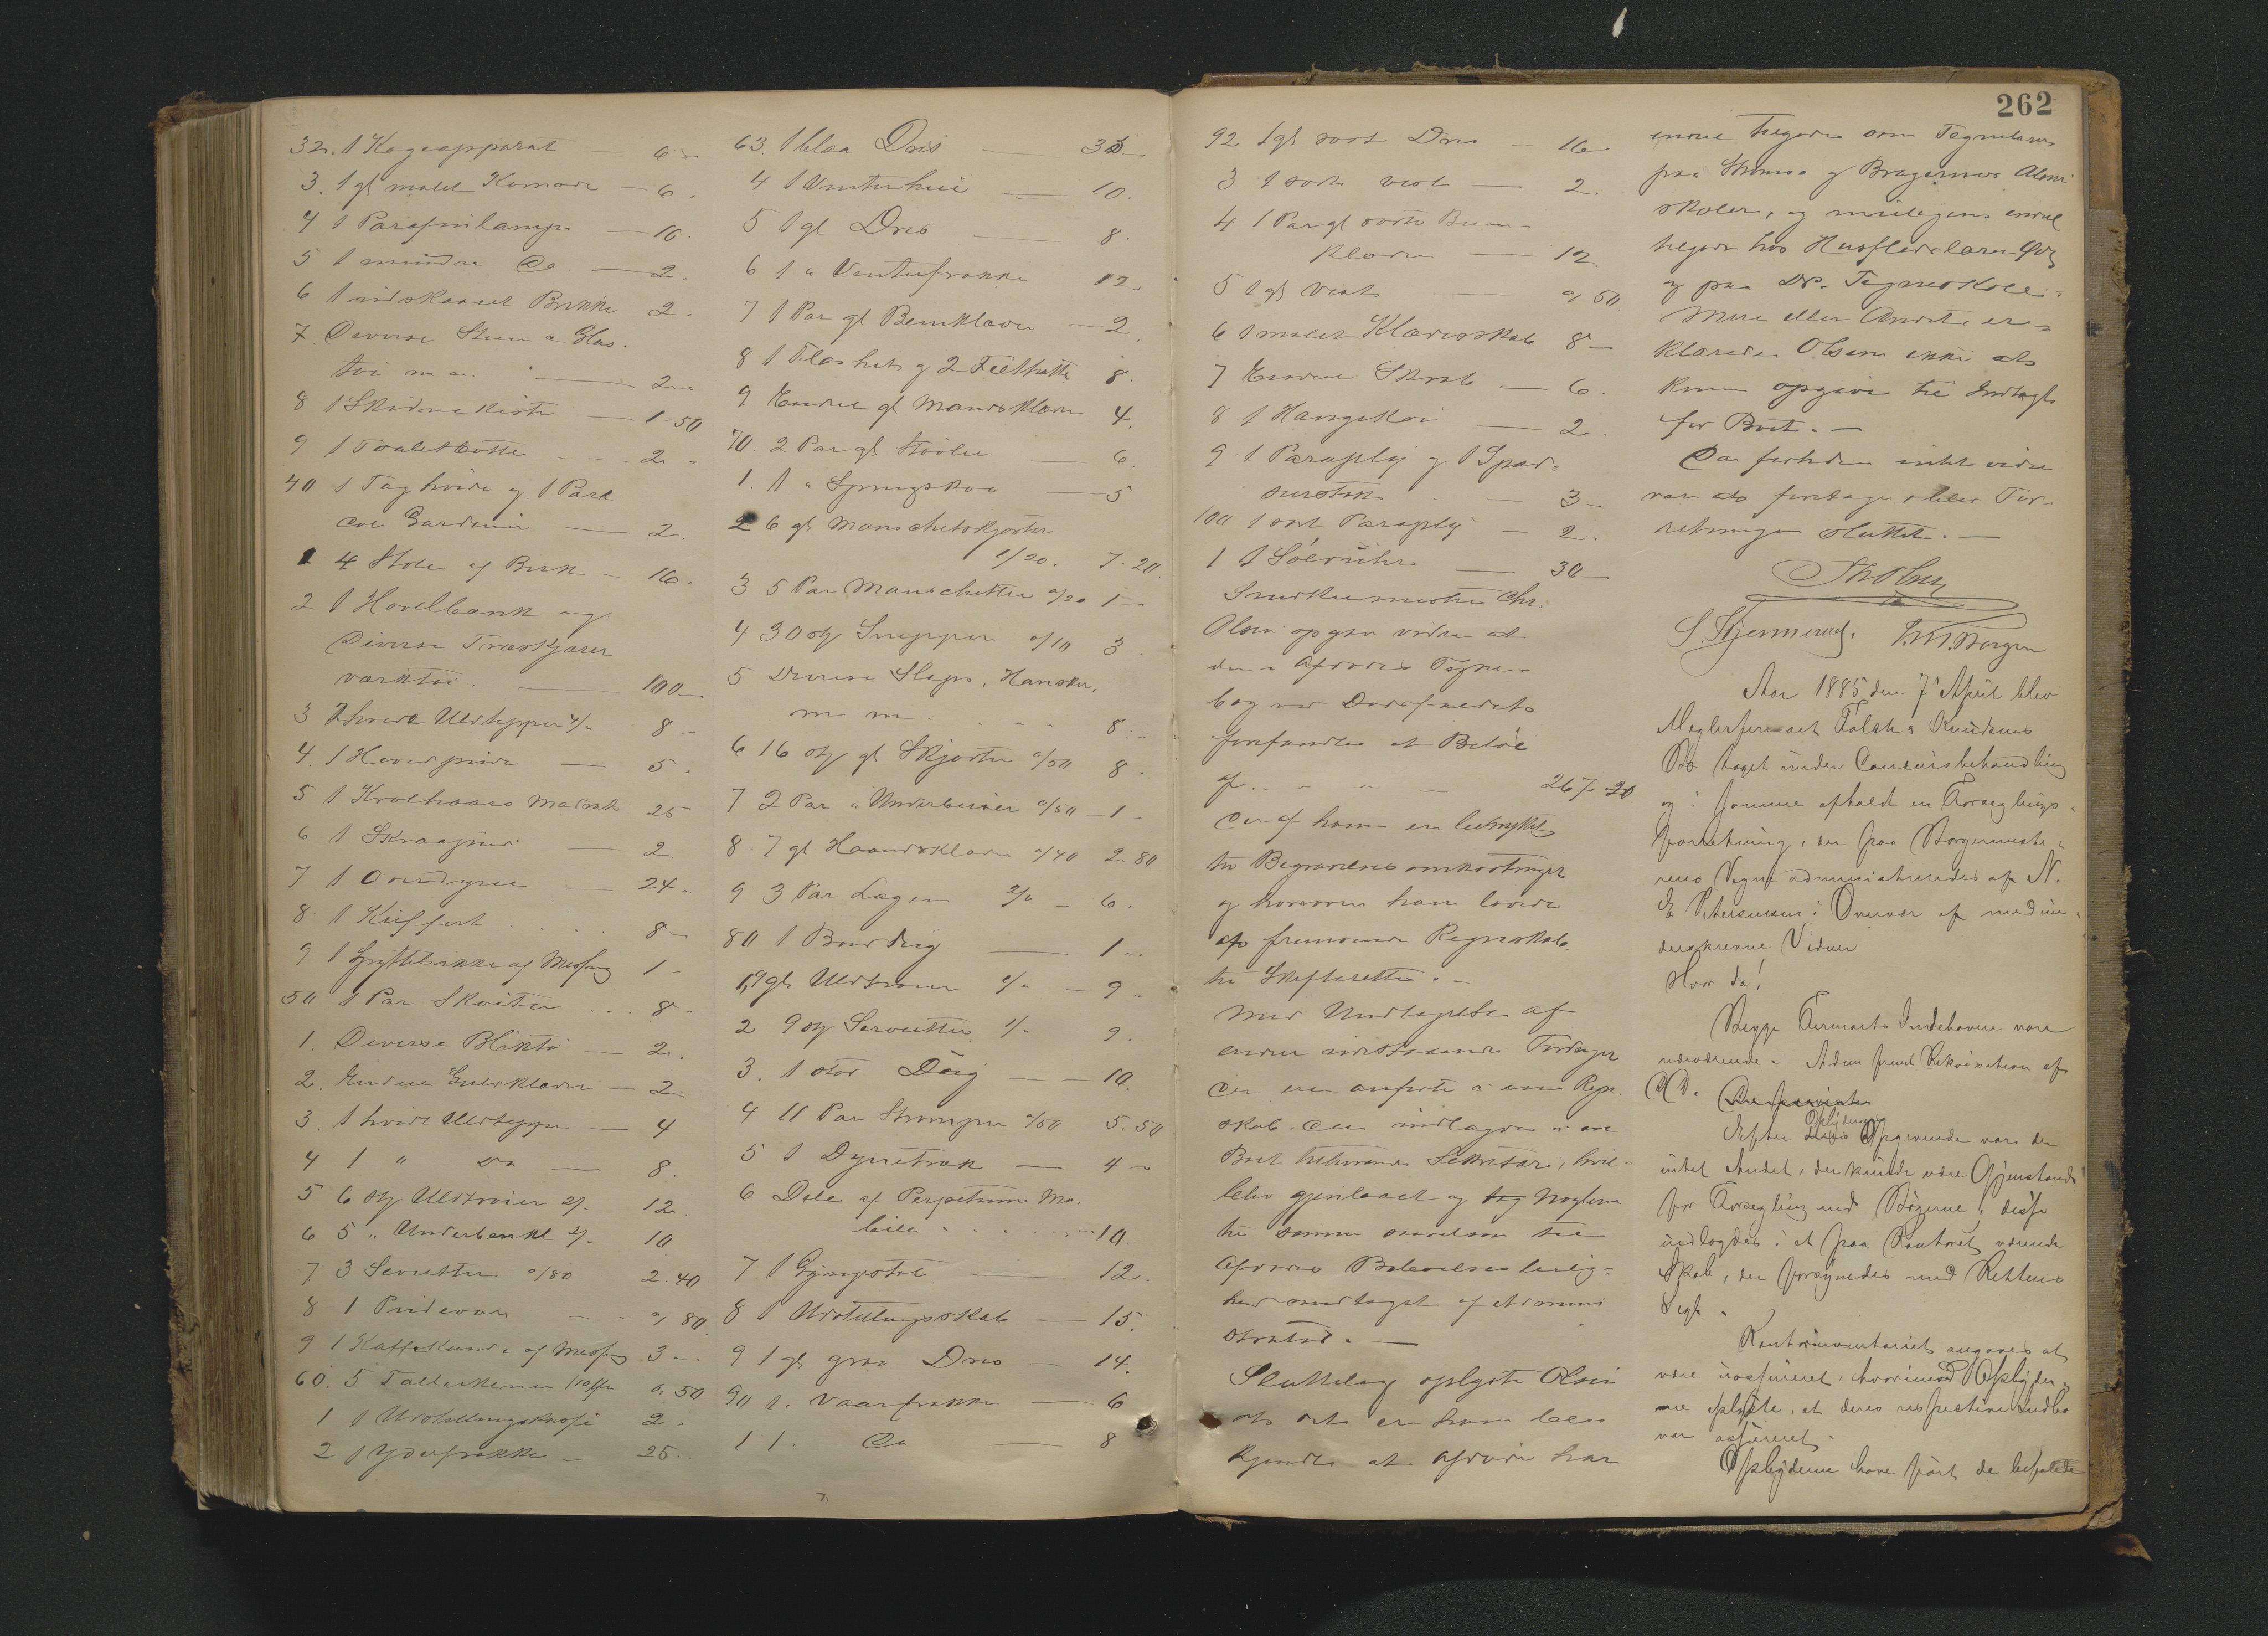 32. 1 Kogeapparat — 6 –
3. 1 gl malet Komode — 6.
4 1 Parafinlampe — 10.
5 1 mindre Do — 2.
6 1 udskaaret Brikke 2.
7. Diverse Steen & Glas-
tøi m m. — 2 –
8 1 Skidnekiste — 1-50
9 1 Toaletbøtte — 2 –
40 1 Tag hvide og 1 Par
Gardiner — 2.
1 4 Stole af Birk — 16.
2 1 Høvelbænk og
Diverse Træskjærer
værktøi. — 100 –
3 2 hvide Uldtepper 4/- 8 –
4. 1 Hovedpude — 5.
5 1 Krølhaars Madrats 25
6 1 Skraapude — 2
7 1 Overdyne — 24.
8 1 Kuffert . . . 8 –
9 1 af Messing 1 –
50 1 Par Skøiter . . . 8 –
1. Diverse Bliktøi — 2.
2. Endel — 2.
3. 1 hvidt Uldteppe — 4
4 1 " do — 8.
5 6 stk Uldtrøier 2/- 12.
6 5 " Underbenkl 2/- 10
7 3 Servietter a/80 2.40
8 1 Pudevar — a/ 80.
9 1 Kaffekande af Messing 3 –
60. 5 Tallerkener 0.50
1 1 2.
2 1 Yderfrakke — 25 –
63. 1 blaa Dres — 35 –
4 1 Vinterhue — 10.
5 1 gl Dres — 8.
6 1 " Vinterfrakke 12.
7 1 Par gl Benklæder — 2.
8 1 Floshat og 2 Filthatte 8.
9 Endel gl Mandsklæder 4.
70. 2 Par gl Støvler — 6.
1. 1 " Springsko — 5
2 6 gl Manschetskjorter
1/20. 7.20.
3 5 Par Manschetter a/20 1 –
4 30 stk Snipper a/10 3.
5 Diverse Slips, Hansker,
m m . . . 8. –
6 16 stk gl Skjorter a/50 8.
7 2 Par " Underbuxer a/50 – 1 –
8 7 gl Haandklæder a/40 2.80
9 3 Par Lagen 2/- – 6.
80 1 Borddug — 1 –
1, 9 gl Uldtrøier 1/- – 9 –
2 9 stk Servietter 1/- 9.
3. 1 stor Dug — 10.
4 11 Par Strømper a/50 5.50
5 1 Dynetræk — 4 –
6 Dele af Perpetuum Mo-
bile . . . 10.
7 1 Gyngestol — 12.
8 1 Udstillingsskab — 15.
9 1 gl graa Dres — 14.
90 1. Vaarfrakke — 6
1 1. Do — 8
262
92 1 gl sort Dres — 16
3 1 sort Vest — 2.
4 1 Par gl sorte Been-
klæder — 12.
5 1 gl Vest — a/ 50
6 1 malet Klædesskab 8 –
7 Endel Skrab — 6.
8 1 Hængekøi — 2.
9 1 Paraply og 1 Spad-
serstok — 3 –
100 1 sort Paraply — 2.
1 1 Sølvuhr — 30 –
Snedkermester Chr.
Olsen opgav videre at
den i Afdødes Tegne-
bog ved Dødsfaldet
forefandtes et Beløb
af . . . 267.20.
der af ham er benyttet
til Begravelsesomkostninger
og hvorover han lovede
at fremsende Regnskab
til Skifteretten. –
Med Undtagelse af
endel udestaaende Fordringer
der ere anførte i en Regn-
skab der indlagdes i en
Boet tilhørende Sekretær, hvil-
blev gjenlaaset og Nøglerne
til samme saavelsom til
Afdødes Beboelsesleilig-
hed modtaget af Admini
strator. –
Sluttelig oplyste Olsen
at det er ham be-
kjendt at afdøde har
endel tilgode som Tegnelærer
paa Strømsø og Bragernes Almu
skoler, og muligens endel
tilgode hos Husflidslærer
og paa Dr. Tegneskole.
Mere eller Andet er-
klærede Olsen ikke at
kunne opgive til Indtægt
for Boet. –
Da forhden intet videre
var at foretage, blev For-
retningen sluttet. –
S. Skjennerud. T. M. Borgen
Aar 1885 den 7 April blev
Meglerfirmaet Falch & Knudsens
Bo taget under Concursbehandling
og i samme afholdt en Forseglings-
forretning, der paa Borgermeste-
rens Vegne administreredes af N.
E Petersen i Overvær af medun-
derskrevne Vidner
Hvor da!
Begge Firmaets Indehavere vare
tilstede
Oplydernes
Efter deres Opgivende var der
intet Andet, der kunde være Gjenstand
for Forsegling end Bøgerne, disse
indlagdes i et paa Kontoret værende
Skab, der forsynedes med Rettens
Segl.
Kontorinventariet angaves at
være uassureret, hvorimod Opbyder-
ne oplyste, at deres respective Indbo
var assureret.
Opbyderne have ført de befalede